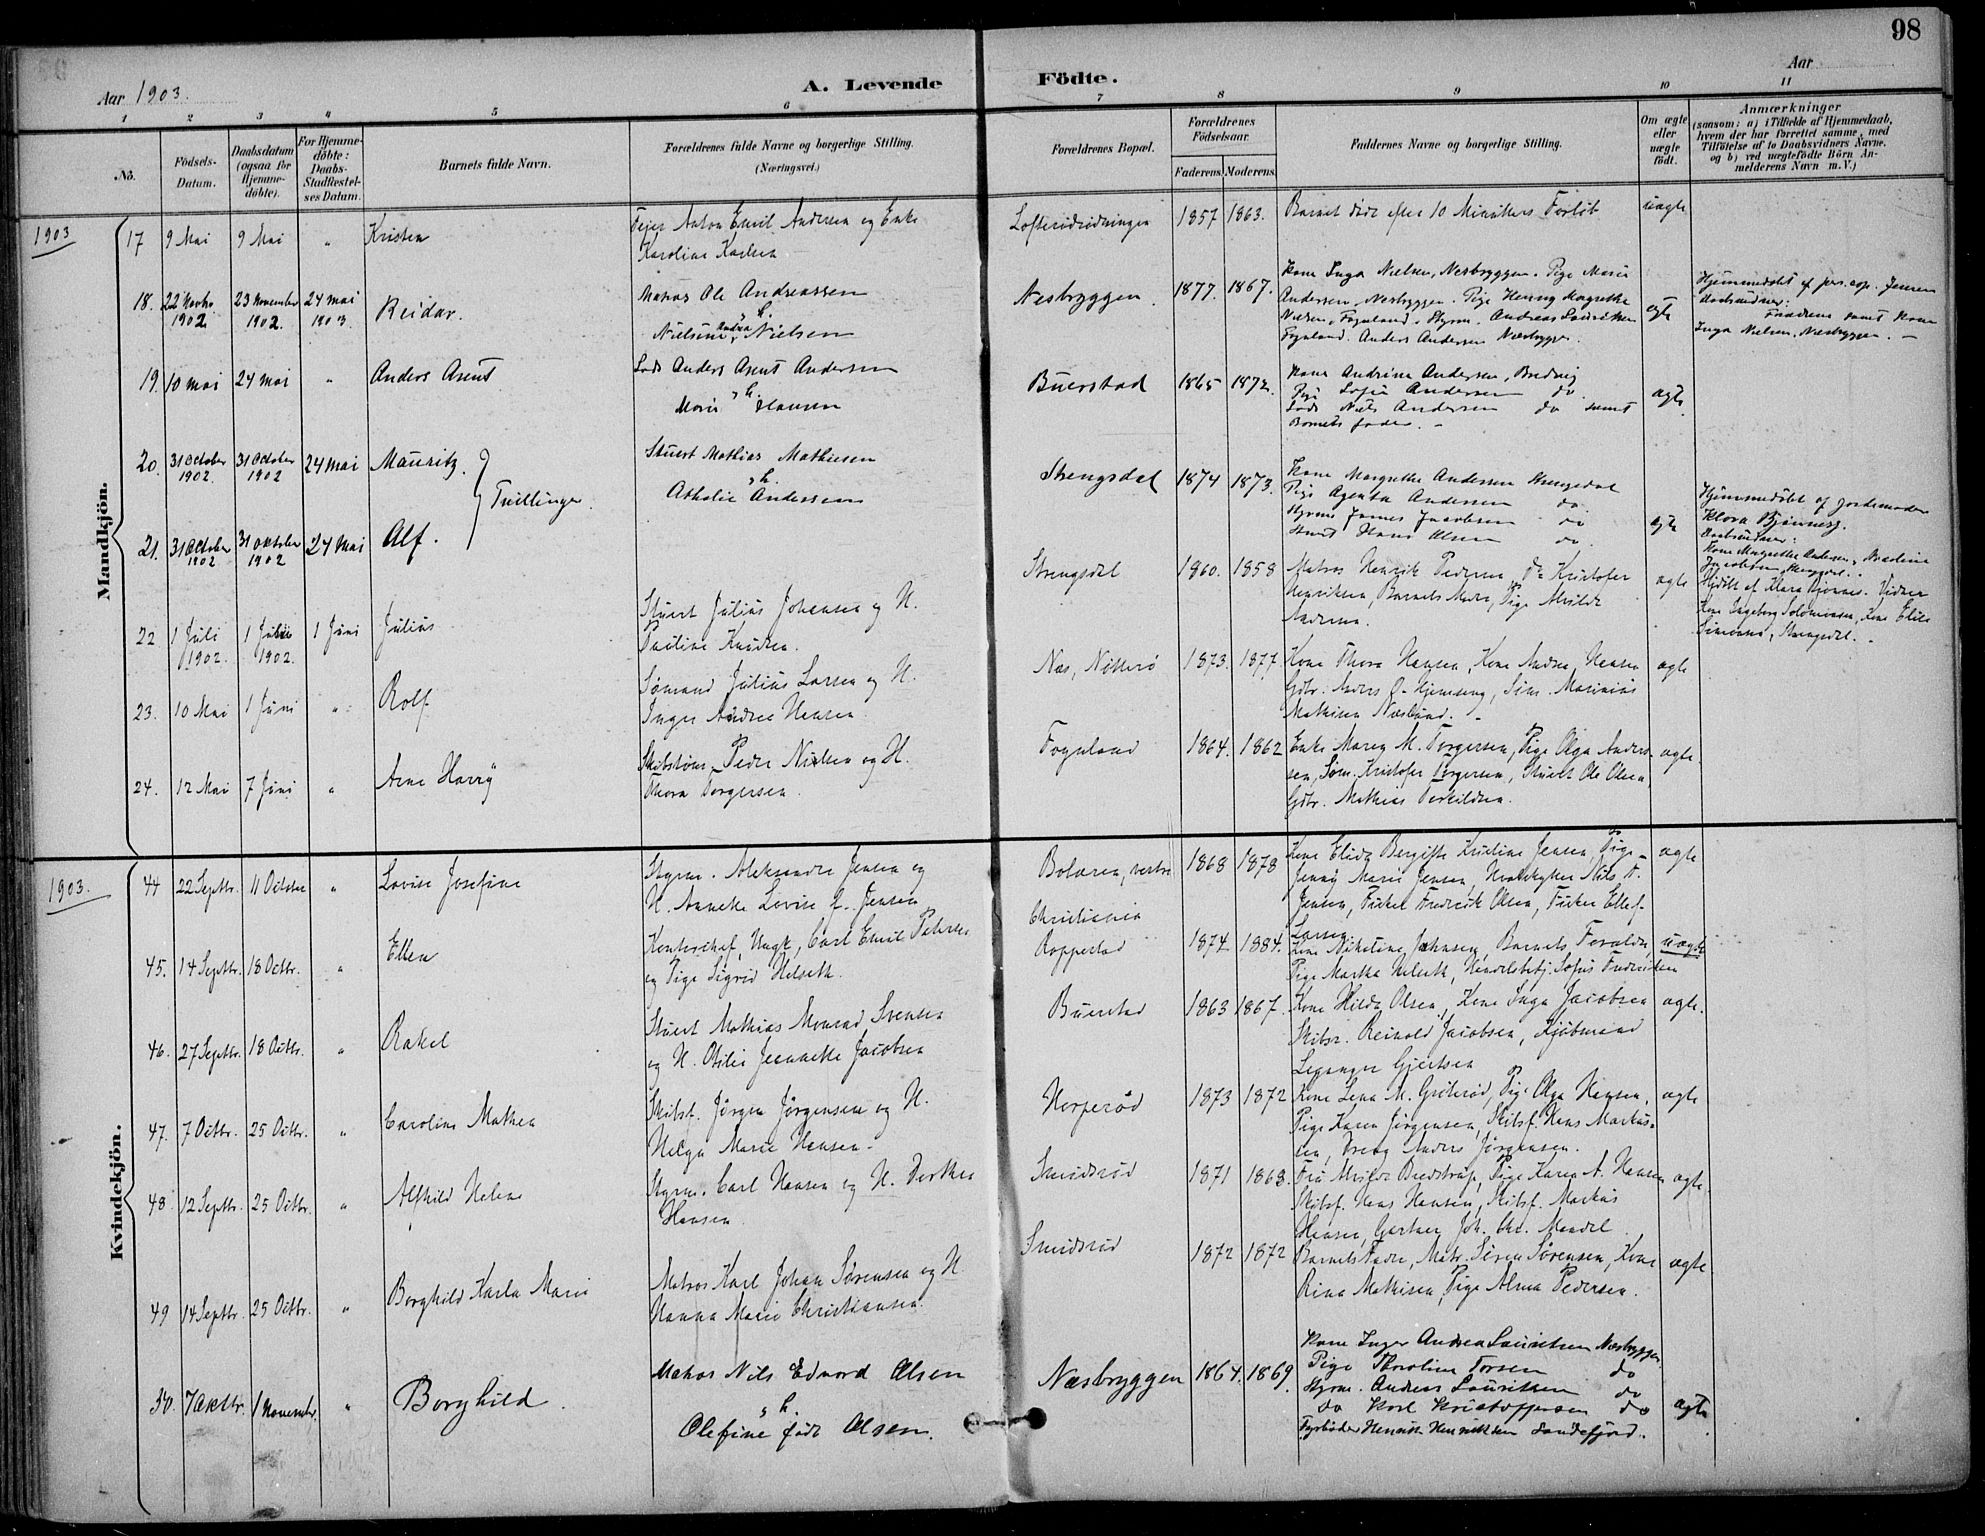 98
Aar 1903.
A. Levende
Födte.
Aar
1 2 3 4 5 6 7 8 9 10 11
No.
Födsels-Datum.
Daabsdatum (ogsaa for Hjemme-döbte).
For Hjemme-döbte: Daabs-Stadfæstel-ses Datum.
Barnets fulde Navn.
Forældrenes fulde Navne og borgerlige Stilling. (Næringsvei.)
Forældrenes Bopæl.
Forældrenes Födselsaar.
Faderens. Moderens.
Faddernes Navne og borgerlige Stilling.
Om ægte eller uægte födt.
Anmærkninger
(saasom: a) i Tilfælde af Hjemmedaab,
hvem der har forrettet samme, med
Tilföielse af to Daabsvidners Navne,
og b) ved uægtefödte Börn An-
melderens Navn m. V.)
Mandkjön.
1903
17 9 Mai 9 Mai " Kristen
Anton Emil Andersen og Enke
Karoline Karlsen
1857 1863. Barnet døde efter 10 Minutters Forløb uægte
18. 22 Novbr 1902 23 November 1902. 24 mai 1903 Reidar.
Matros Ole Andreassen
og h.
Nielsine Andrea Nielsen
Nesbryggen. 1877. 1867.
Kone Inga Nielsen, Nesbryggen. Pige Marie
Andersen, Nesbryggen. Pige Henny Margrethe
Nielsen, Fogneland. Styrm. Andreas Lauritsen
Fogneland. Anders Andersen Næsbryggen.
ægte
Hjemmedøbt af pers. cap. Jensen
daabsvidner:
Forældrene samt Kone
Inga Nielsen, Næsbryggen. —
19. 10 mai 24 mai " Anders Arent
Lods Anders Arent Andersen
og h.
Marie Hansen
Buerstad 1865 1872.
Kone Andrine Andersen, Bredvig
Pige Sofie Andersen do.
Lods Niels Andersen do samt
Barnets fader. —
ægte.
20. 31 October 1902. 31 October 1902 24 mai Mauritz.
Tvillinger.
Stuert Mathias Mathiesen
og h.
Athalie Andersen
Strengsdal 1874 1873.
Kone Margrethe Andersen Strengsdal
Pige Agentha Andersen do.
Styrm James Jacobsen do
Hans Olsen do.
ægte
21. 31 October 1902 31 oktober 1902 24 Mai Alf.
Hjemmedøbt af jordemoder
Klara Bjønnes.
Daabsvidner:
Kone Margrethe Andersen,
Jacobsen, Strengsdal.
22 1 Juli 1902. 1 Juli 1902. 1 Juni Julius
Stuert Julius Johansen og H.
Pauline Knudsen.
Strengsdal 1860. 1858
Matros Henrik Pedersen, do Kristofer
Henriksen, Barnets Moder, Pige Alvilde
Andersen.
ægte
Hjdøbt af Klara Bjønnes. Vidner
Kone Ingeborg Solomonsen, Kone Elise
Simonsen, Strengsdal. —
23. 10 Mai 1 Juni " Rolf
Sømand Julius Larsen og H.
Inger Andrea Hansen.
Næs, Nøtterø 1873. 1877
Kone Thora Hansen, Kone Andrea Hansen
Gdbr. Anders O. Hjemseng, Søm. Marinius
Mathisen Næslund. —
ægte
24. 12 Mai 7 Juni " Arne Harry
Skibstøm. Peder Nielsen og H.
Thora Torgersen.
Fogneland 1864. 1862
Enke Maren M. Torgersen, Pige Olga Ander-
sen, Søm. Kristofer Torgersen, Stuert Ole Olsen,
Gdbr. Mathias Terkildsen.
ægte.
Kvindekjön.
1903.
44 22 Septbr. 11 October " Lovise Josefine
Styrm. Aleksander Jensen og
H. Annette Lovise f. Jensen
Bolæren, vestre 1868 1878
Kone Elida Bergitte Kristine Jensen, Pige
Jenny Marie Jensen, Hvalskytter Nils A.
Jensen, Fisker Fredrik Olsen, Fisker Ellef
Larsen.
ægte
45. 14 Septbr. 18 Octbr. " Ellen
Kontorchef, Ungk. Carl Emil Petersen
og Pige Sigrid Helseth.
Christiania
Roppestad 1874 1884.
Kone Nikoline Johnsen, Barnets Forældre,
Pige Martha Helseth, Handelsbetj. Sofus Fredriksen
uægte
46. 27 Septbr. 18 Octbr. " Rakel
Stuert Mathias Monrad Svensen
og H. Otilie Jeanette Jacobsen
Buerstad 1863 1867.
Kone Hilda Olsen, Kone Inga Jacobsen
Skibsr. Reinold Jacobsen, Kjøbmand
Leganger Gjertsen
ægte.
47. 7 Octbr. 25 Octbr. " Caroline Mathea
Skibsf. Jørgen Jørgensen og H.
Helga Marie Hansen.
Herperød 1873 1872
Kone Lena M. Græterød, Pige Olga Hansen,
Pige Karen Jørgensen, Skibsf. Hans Markus-
sen, Anders Jørgensen.
ægte
48. 12 Septbr. 25 Octbr. " Alfhild Helene
Styrm. Carl Hansen og H. Dorthea
Hansen.
Smidsrød 1871 1868.
Fru Alvilde Bredstrup, Pige Karen A. Hansen
Skibsf. Hans Hansen, Skibsf. Markus
Hansen, Gartner Joh. Chr. Mandal.
ægte.
49 14 Septbr. 25 Octbr. " Borghild Karla Marie
Matros Karl Johan Sørensen og H.
Hanna Marie Christiansen.
Smidsrød 1872 1872
Barnets Fader, Matr. Søren Sørensen, Kone
Rina Mathisen, Pige Alma Pedersen.
ægte
50. 7 Oktbr. 1 Novembr. " Borghild.
Matros Nils Edvard Olsen
og h.
Olefine født Olsen.
Næsbryggen 1864. 1869.
Kone Inger Andrea Lauritsen Næsbryggen
Pige Thoroline Torsen do
Styrm. Andreas Lauritsen do
do Karl Kristoffersen do
Fyrbøder Henrik Henriksen Sandefjord.
ægte